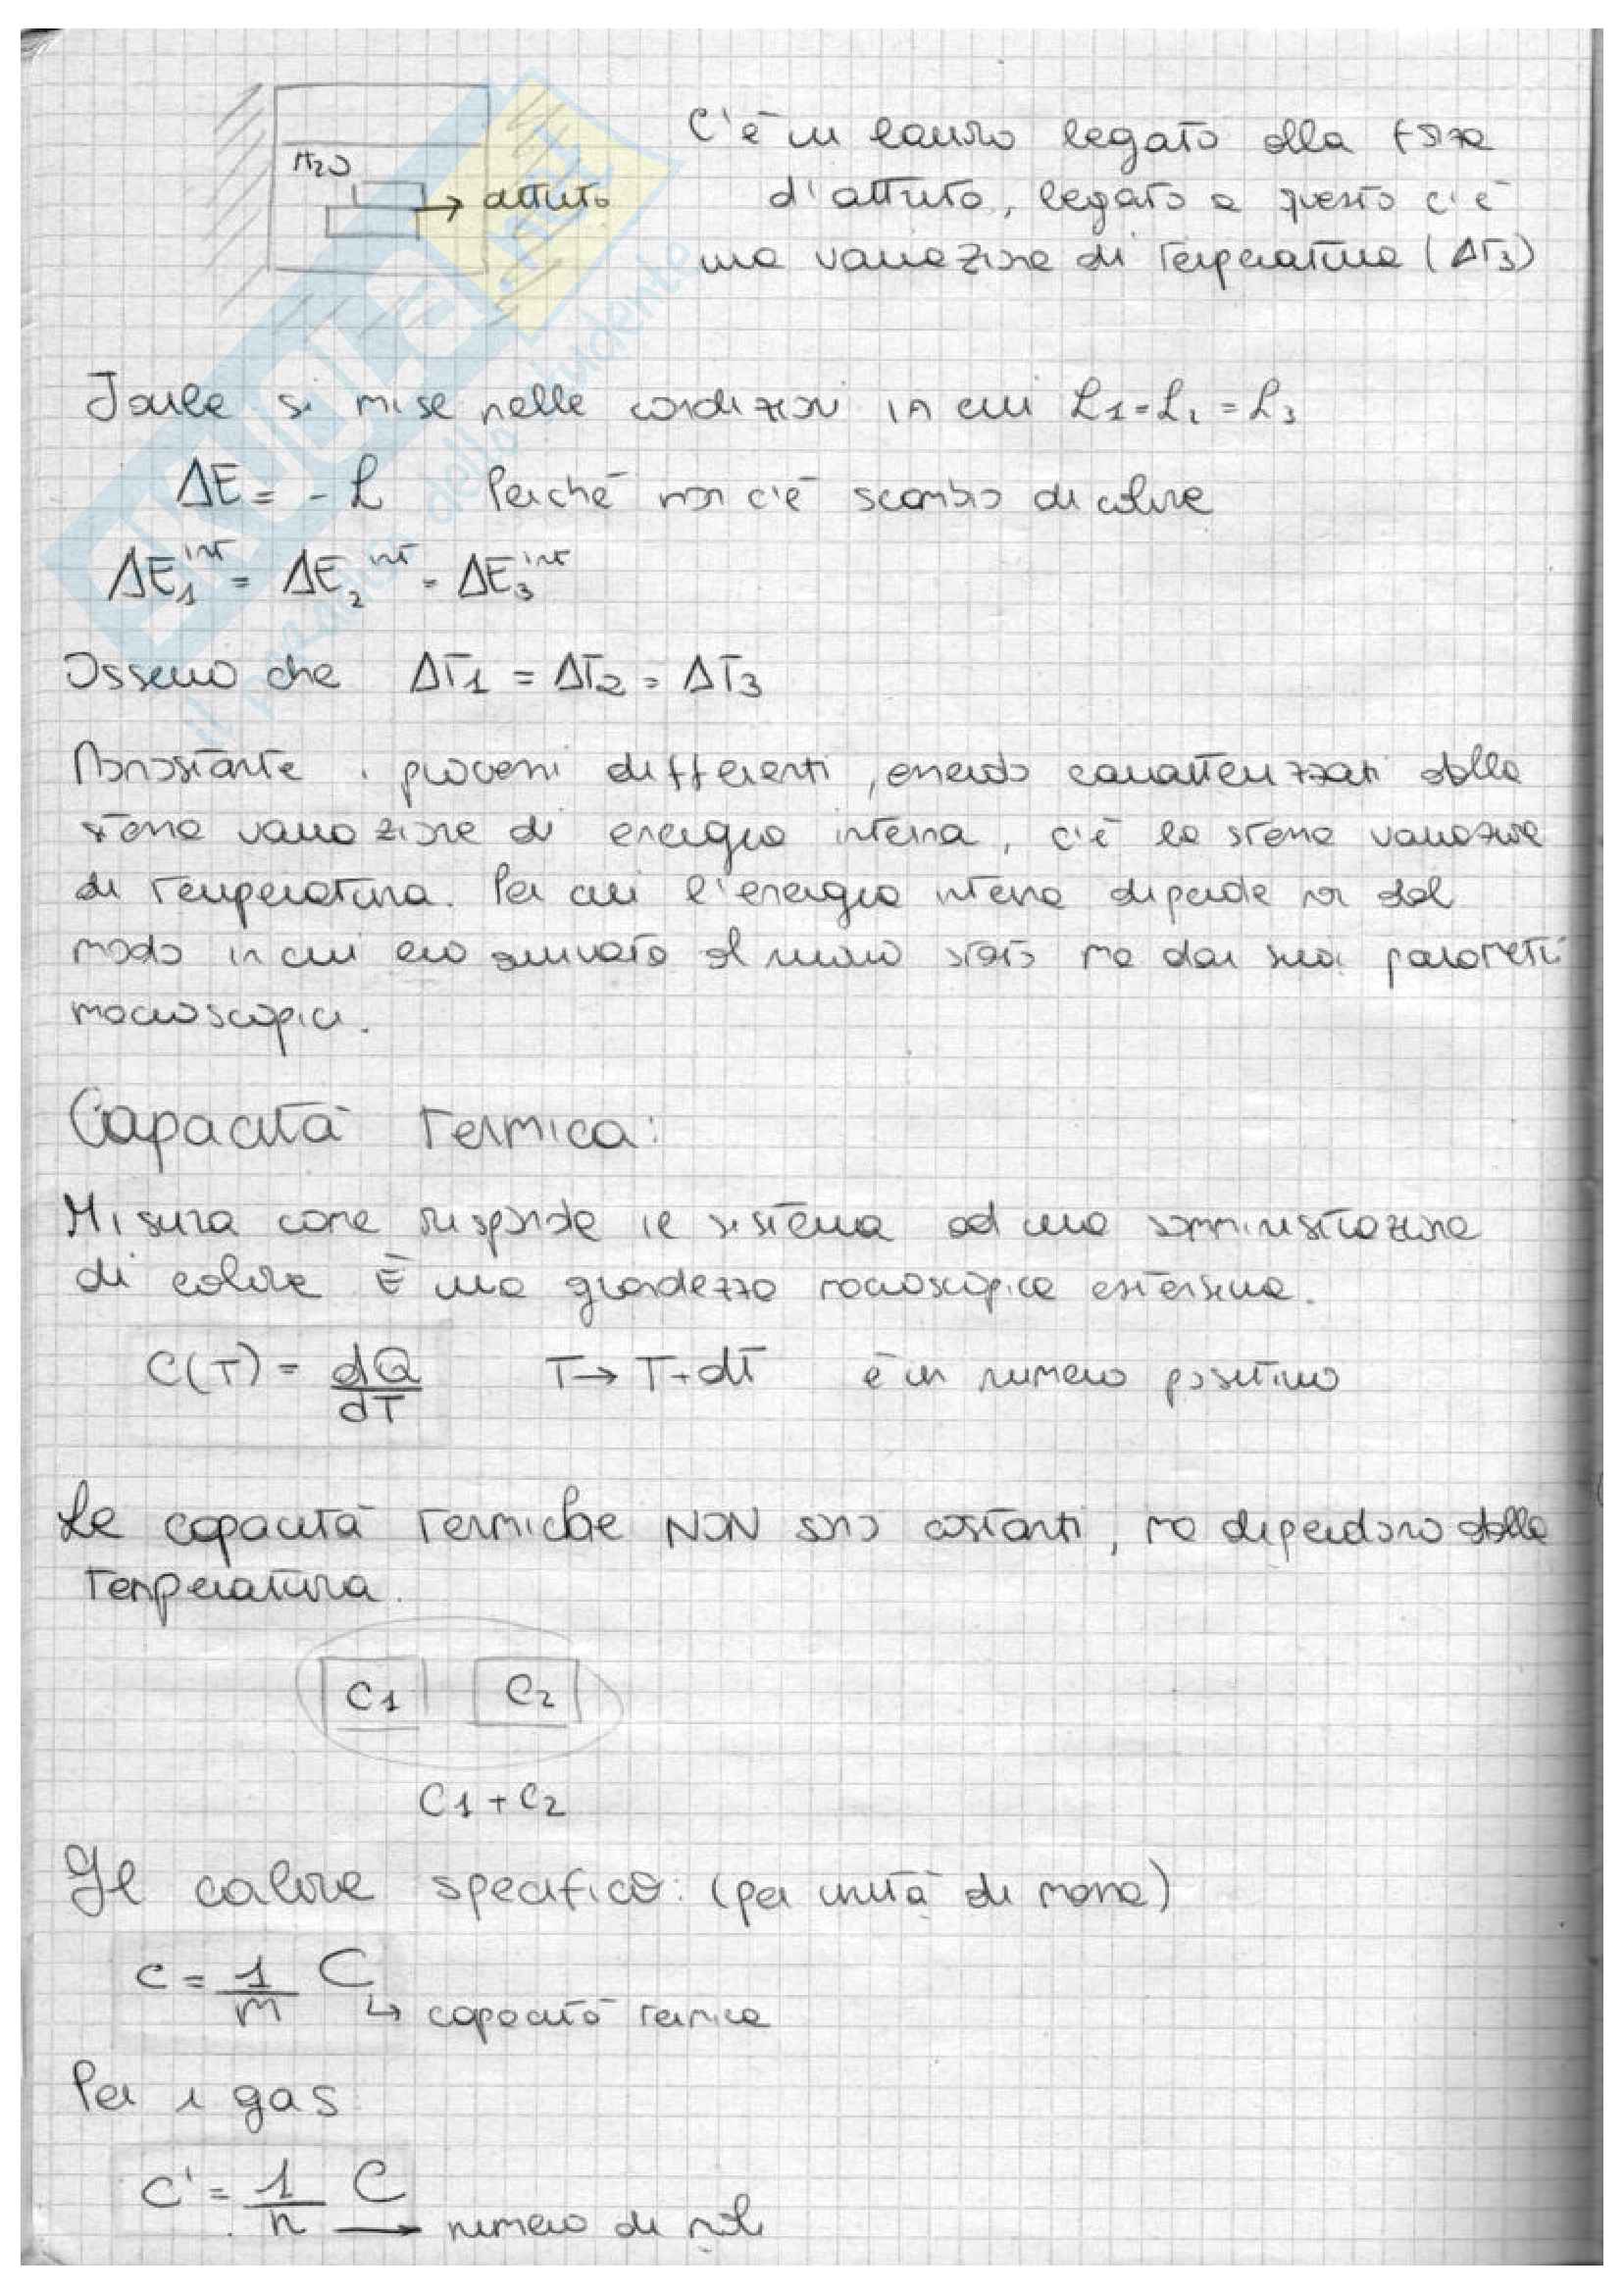 H2O
→ attrito
C'è un lavoro legato alla forza
d'attrito, legato a questo c'è
una variazione di temperatura (ΔT3)
Joule si mise nelle condizioni in cui L1 = L2 = L3
ΔE = - L Perché non c'è scambio di calore
ΔE1^int = ΔE2^int = ΔE3^int
Osservo che ΔT1 = ΔT2 = ΔT3
Nonostante i processi differenti, essendo caratterizzati dalla
stessa variazione di energia interna, c'è la stessa variazione
di temperatura. Per cui l'energia interna dipende non dal
modo in cui ero arrivato al nuovo stato ma dai suoi parametri
macroscopici.
Capacità termica:
Misura come risponde il sistema ad una somministrazione
di calore È una grandezza macroscopica estensiva.
C(T) = dQ/dT T → T + dT è un numero positivo
Le capacità termiche NON sono costanti, ma dipendono dalla
temperatura.
C1 C2
C1 + C2
Il calore specifico: (per unità di massa)
c = 1/m C
↳ capacità termica
Per i gas
c' = 1/n C
→ numero di moli
SKUOLA.net
il paradiso dello studente